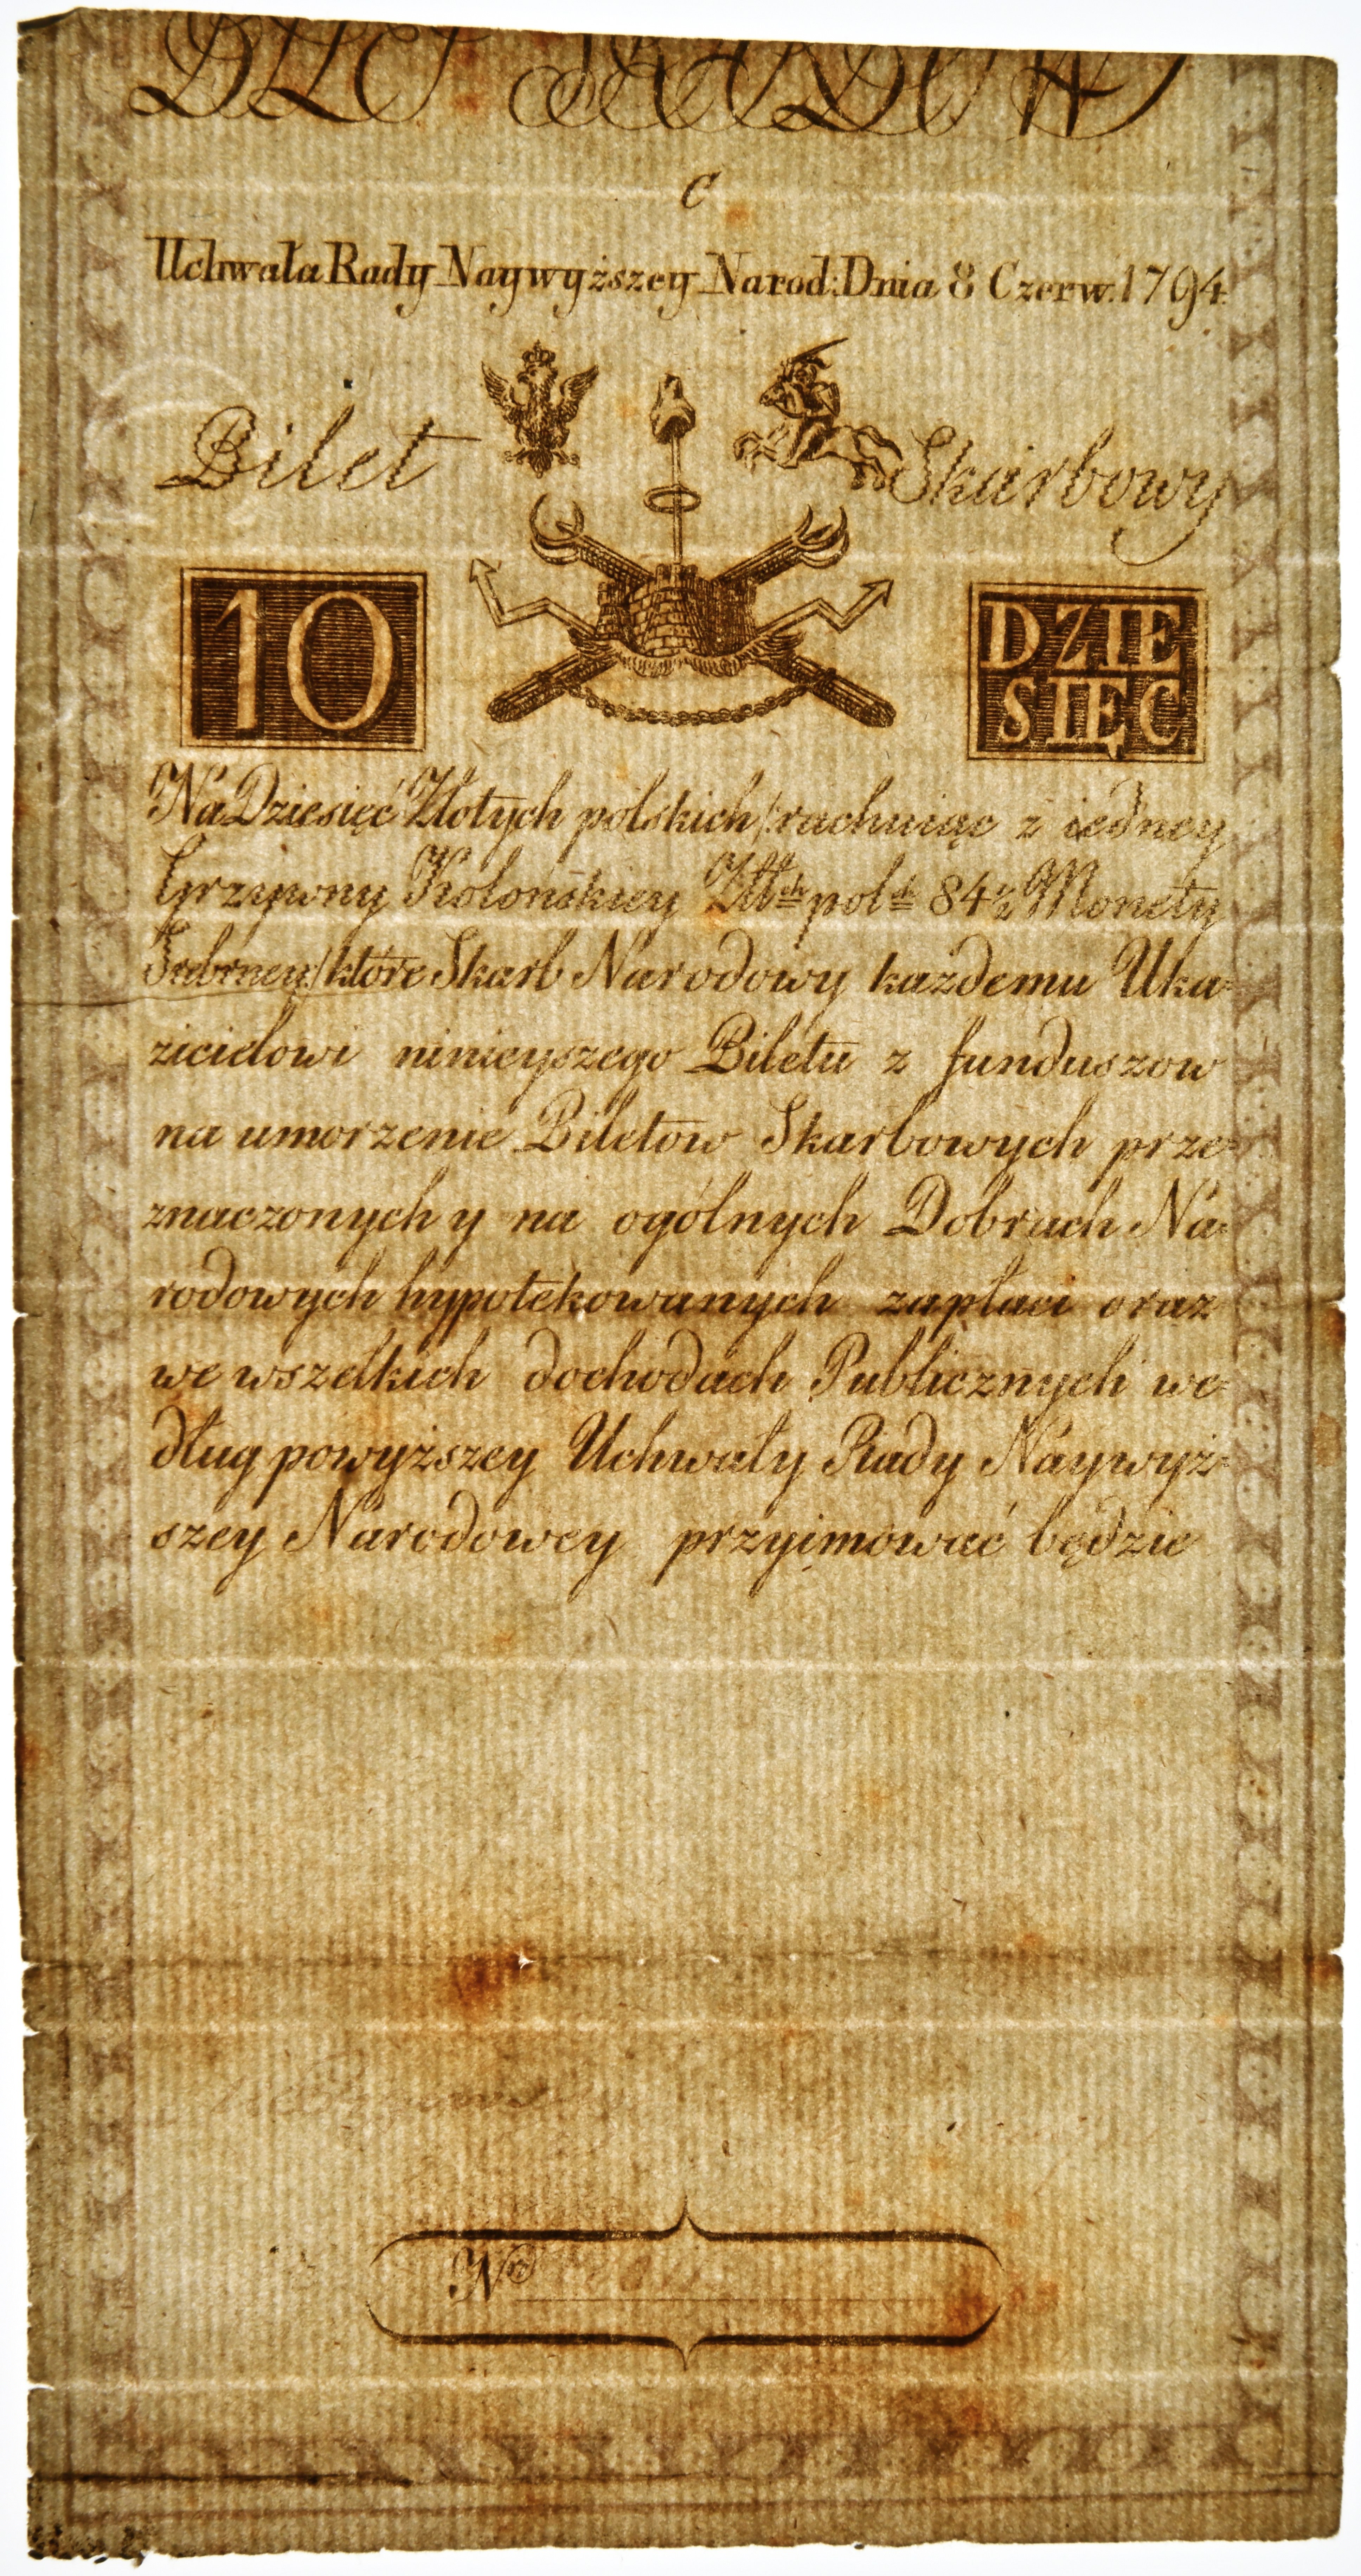 BILET SKARBOWY
C
Uchwała Rady Naywyższey Narod: Dnia 8 Czerw. 1794.
Bilet Skarbowy
10
DZIE
SIĘC
Na Dziesięć Złotych polskich /:rachuiąc z iedney
Grzywny Kolońskiey Złł:ch pol:ch 84½ Monety
Srebrney:/ które Skarb Narodowy każdemu Uka=
zicielowi ninieyszego Biletu z funduszow
na umorzenie Biletow Skarbowych prze=
znaczonych y na ogólnych Dobrach Na=
rodowych hypotekowanych zapłaci oraz
we wszelkich dochodach Publicznych we=
dług powyższey Uchwały Rady Naywyż=
szey Narodowey przyimować będzie
Nro